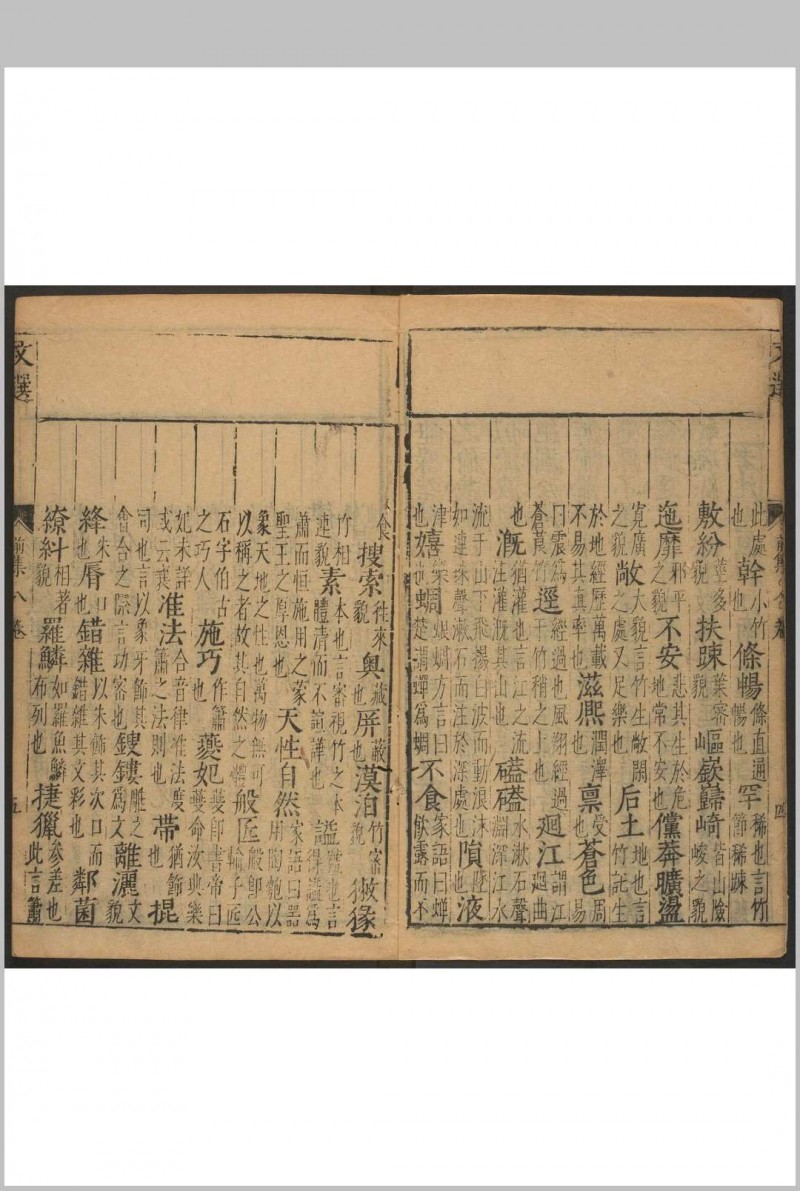 文選
前集八卷
四
此處也幹小竹也條暢條直通暢也罕稀也言竹節稀踈
敷紛莖多貌扶踈葉密貌嶇嶔巋崎皆山險峻之貌
迤靡邪平之貌不安悲其生於危地常不安也儻莽曠盪
寬廣之貌敞大貌言竹生敞閑之處又足樂也后土地也言竹託生
於地經歷萬載不易其真率也滋熈潤澤也禀受也蒼色周易
曰震為蒼莨竹逕經過也風翔經過于竹稍之上也廻江謂江廻曲
也溉猶灌也言江之流注灌溉其山也磕磕水漱石聲淵深江水
流于山下飛揚白波而動浪沫如連珠聲漱石而注於深處也隕墜也液
津也嬉樂也蜩娘蜩方言曰楚謂蟬為蜩不食家語曰蟬飲露而不
食搜索徃來貌奧藏也屏蔽也漠泊竹密貌猭
竹相連貌素本也言審視竹之本體清而不諠譁也謚號也言得謚為
簫而恒施用之蒙聖王之厚恩也天性自然家語曰器用陶匏以
象天地之性也萬物無可以稱之者故其自然之體般匠般即公輸子匠
石字伯古之巧人施巧作簫也夔妃夔即書帝曰夔命汝典樂
妃未詳或云襄准法合音律准法度簫之法則也帶猶飾也掍
同也言以象牙飾其會合之際言功密也鎪鏤雕之為文離灑文貌
絳朱也脣口也錯雜以朱飾其次口而錯雜其文彩也鄰菌
繚糾相著貌羅鱗如羅魚鱗布列也捷獵參差也此言簫
文選
前集八卷
五